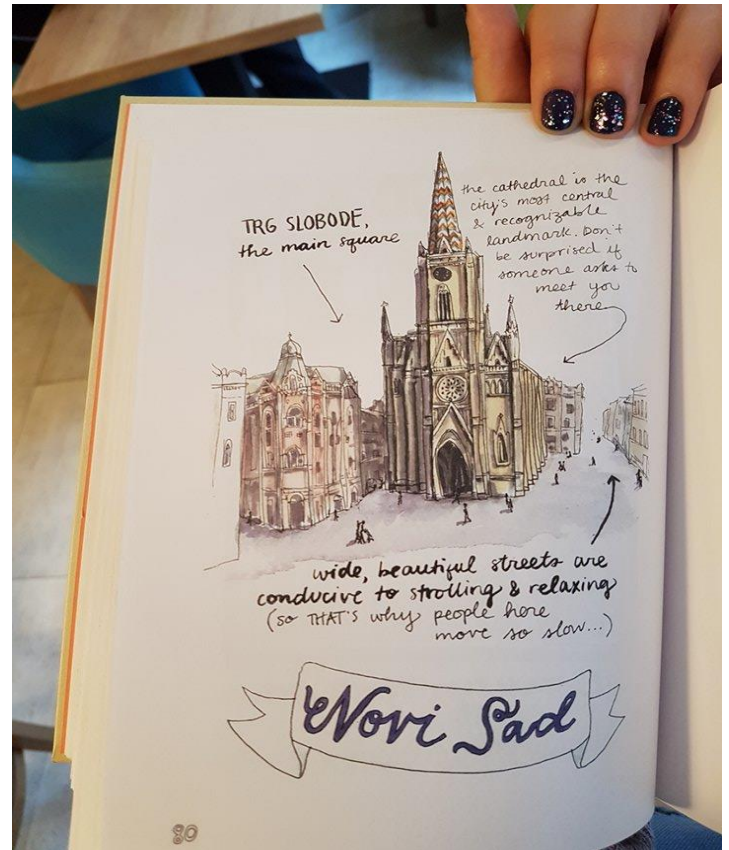 TRG SLOBODE,
the main square
the cathedral is the
city's most central
& recognizable
landmark. Don't
be surprised if
someone asks to
meet you
there
wide, beautiful streets are
conducive to strolling & relaxing
(so THAT'S why people here
move so slow...)
Novi Sad
80